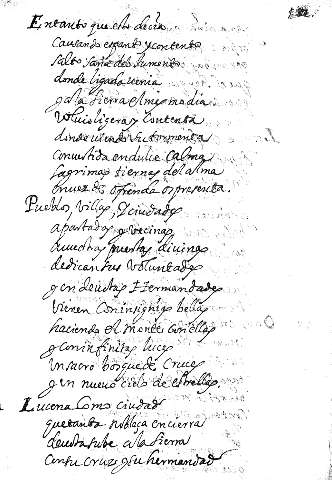 Entanto que esto decia
causando espanto y contento
salto sante del Jumento
donde ligada venia
y a la sierra el mismo dia
Volvio ligera y contenta
donde
convertida en dulce Calma
lagrimas tiernas del alma
ofrenda os presenta.
Pueblos, Villas, y ciudades
apartadas y vecinas
a vuestras puertas divinas
dedican sus Voluntades
y en devotas Hermandades
vienen con insignias bellas
haciendo el monte con ellas
y con infinitas luces
un sacro bosque de Cruces
y un nuevo cielo de estrellas.
Lucena Como ciudad
que tanta nobleça encierra
devota sube a la sierra
con su Cruz y su hermandad